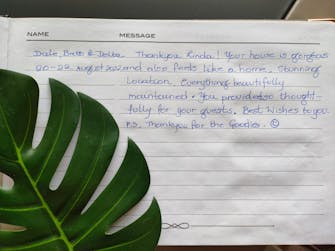 NAME MESSAGE
Dale, Bren & Thankyou Linda! Your house is gorgeous
20-22 August and also feels like a home. Stunning
Location. Everything beautifully
maintained. You provided so thought-
fully for your guests. Best Wishes to you.
P.S. Thankyou for the Goodies. ☺